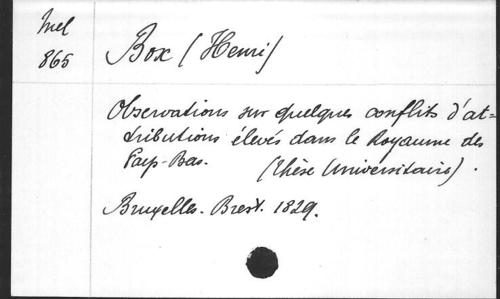 Mel
865
Box (Henri)
Observations sur quelques conflits d'at=
tributions élevés dans le Royaume des
Pays-Bas. (Thèse Universitaire).
Bruxelles. Brest. 1829.